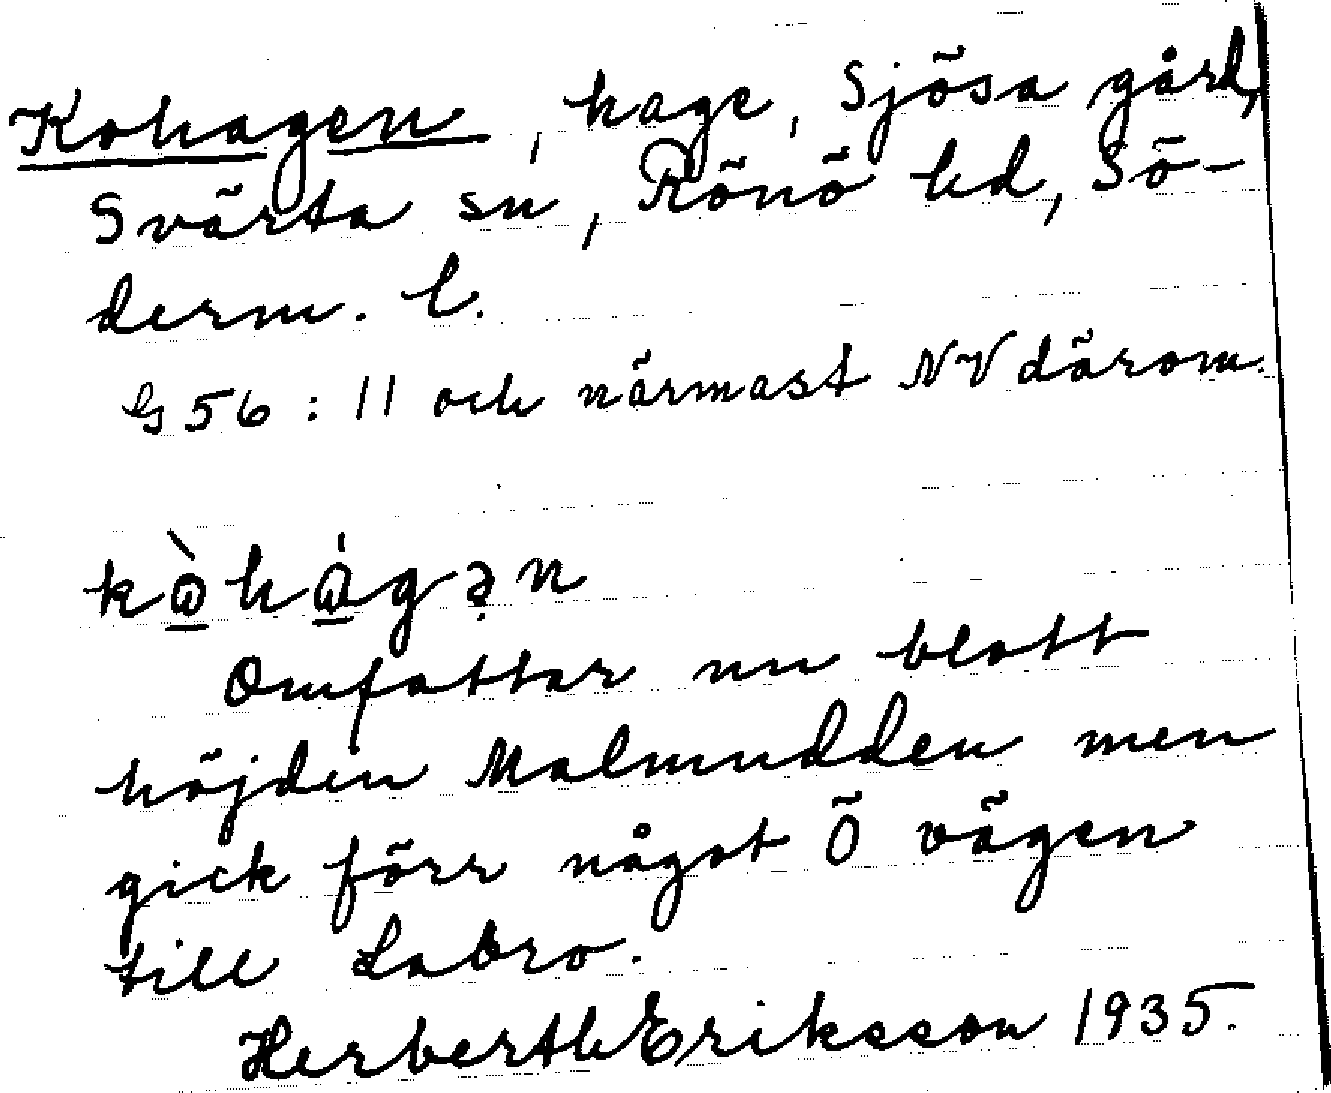 Kohagen, hage, Sjösa gård,
Svärta sn, Rönö hd, Sö-
derm. l.
G 56 : 11 och närmast NV därom.
Omfattar nu blott
höjden Malmudden men
gick förr något Ö vägen
till Labro.
Herbert Eriksson 1935.